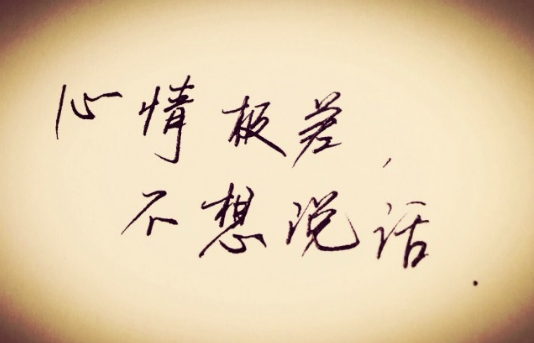 心情极差,
不想说话.